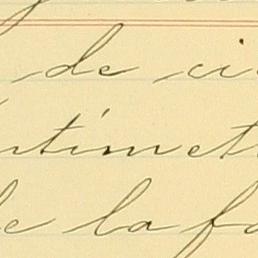 de ci
ntimet
de la fa